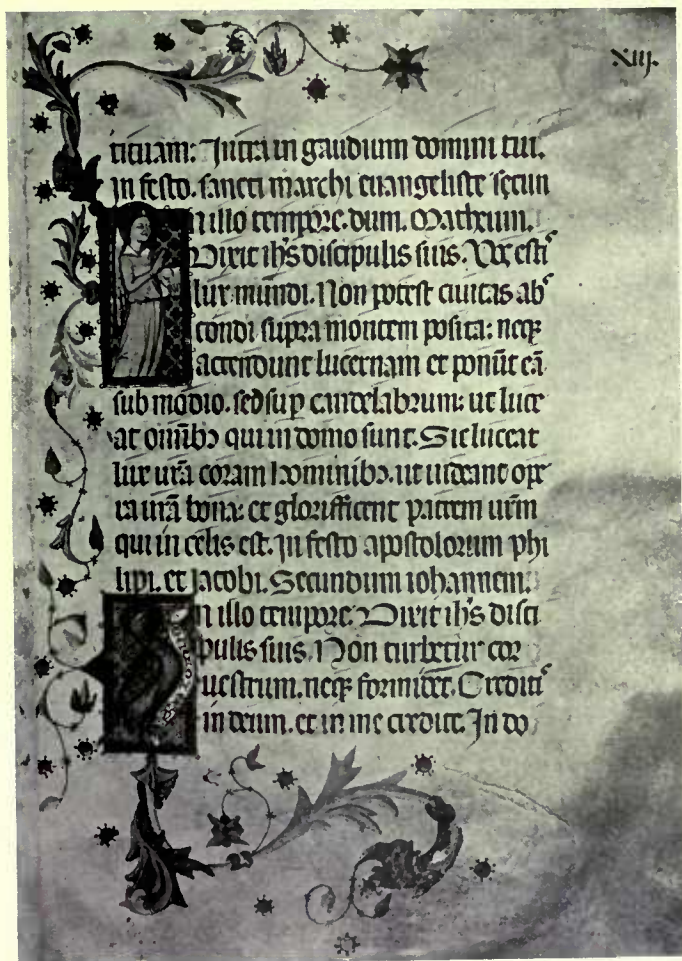 XIIJ.
tituam: Intra in gaudium domini tui.
In festo. sancti marchi euangeliste secun
n illo tempore. dum. Matheum.
Dixit ih̅s discipulis suis. Vos estis
lux mundi. Non potest ciuitas abs
condi supra montem posita: neqꝫ
accendunt lucernam et ponūt eā
sub modio. sed sup candelabrum: ut luce
at omībꝫ qui in domo sunt. Sic luceat
lux urā coram hominibꝫ. ut uideant ope
ra urā bona: et glorifficent patrem urm̄
qui in celis est. In festo apostolorum phi
lipi. et Jacobi. Secundum iohannem.
n illo tempore. Dixit ih̅s disci
pulis suis. Non turbetur cor
uestrum. neqꝫ formidet. Creditis
in deum. et in me credite. In do